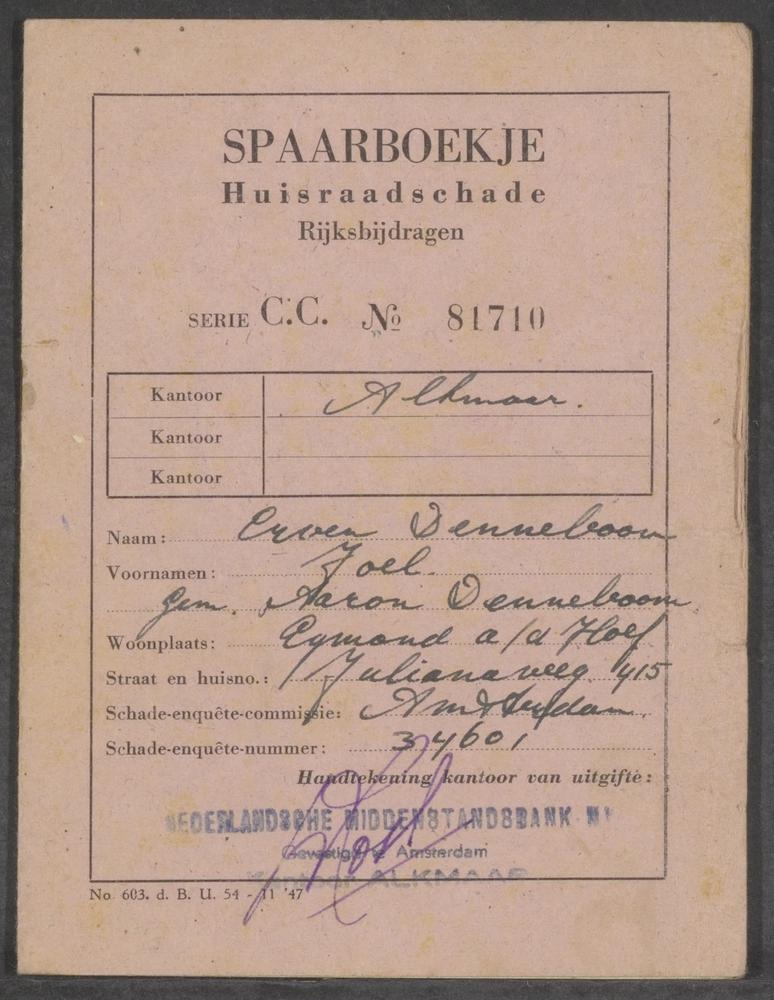 SPAARBOEKJE
Huisraadschade
Rijksbijdragen
SERIE C.C. No 81710
Kantoor Alkmaar.
Kantoor
Kantoor
Naam: Erven Denneboom
Voornamen: Joel.
Gem. Aaron Denneboom
Woonplaats: Egmond a/d Hoef
Straat en huisno.: Julianaweg 415
Schade-enquête-commissie: Amsterdam
Schade-enquête-nummer: 34601
Handtekening kantoor van uitgifte:
NEDERLANDSCHE MIDDENSTANDSBANK N.V.
Gevestigd te Amsterdam
Kantoor ALKMAAR
No. 603. d. B. U. 54 - 11 '47